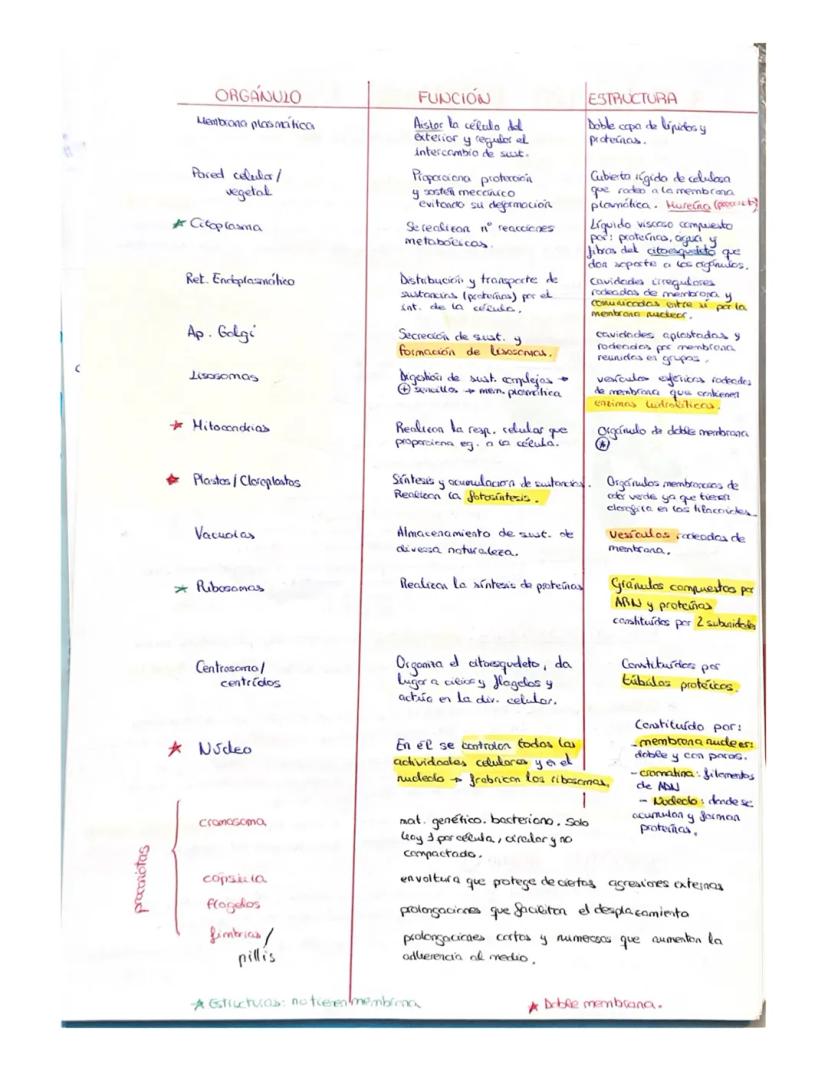 ORGÁNULO FUNCIÓN ESTRUCTURA
Membrana plasmática
Aislar la célula del
exterior y regular el
intercambio de sust.
Doble capa de lípidos y
proteínas.
Pared celular/
vegetal
Proporciona protección
y sostén mecánico
evitando su deformación
Cubierta rígida de celulosa
que rodea a la membrana
plasmática. Mureína
★ Citoplasma
Se realizan nº reacciones
metabólicas.
Líquido viscoso compuesto
por: proteínas, agua y
fibras del citoesqueleto que
dan soporte a los orgánulos.
Ret. Endoplasmático
Distribución y transporte de
sustancias (proteínas) por el
int. de la célula.
Cavidades irregulares
rodeadas de membrana y
comunicadas entre sí por la
membrana nuclear.
Ap. Golgi
Secreción de sust. y
formación de lisosomas.
cavidades aplastadas y
rodeadas por membrana
reunidas en grupos.
Lisosomas
Digestión de sust. complejas →
⊕ sencillas → mem. plasmática
vesículas esféricas rodeadas
de membrana que contienen
enzimas hidrolíticas.
★ Mitocondrias
Realizan la resp. celular que
proporciona eg. a la célula.
Orgánulo de doble membrana
★ Plastos/Cloroplastos
Síntesis y acumulación de sustancias.
Realizan la fotosíntesis.
Orgánulos membranosos de
color verde ya que tienen
clorofila en los tilacoides
Vacuolas
Almacenamiento de sust. de
diversa naturaleza.
Vesículas rodeadas de
membrana.
★ Ribosomas
Realizan la síntesis de proteínas
Gránulos compuestos por
ARN y proteínas
constituídos por 2 subunidades
Centrosoma/
centríolos
Organiza el citoesqueleto, da
lugar a cilios y flagelos y
actúa en la div. celular.
Constituídos por
túbulos proteicos.
★ Núcleo
En él se controlan todas las
actividades celulares y en el
nucleolo → frabrican los ribosomas.
Constituído por:
- membrana nuclear:
doble y con poros.
- cromatina: filamentos
de ADN
- Nucleolo: donde se
acumulan y forman
proteínas.
procariotas
cromosoma
mat. genético. bacteriano. Solo
hay 1 por célula, circular y no
compactado.
cápsula
envoltura que protege de ciertas agresiones externas
flagelos
prolongaciones que facilitan el desplazamiento
fimbrias/
pillis
prolongaciones cortas y numerosas que aumentan la
adherencia al medio.
★ Estructuras: no tienen membrana
★ Doble membrana.